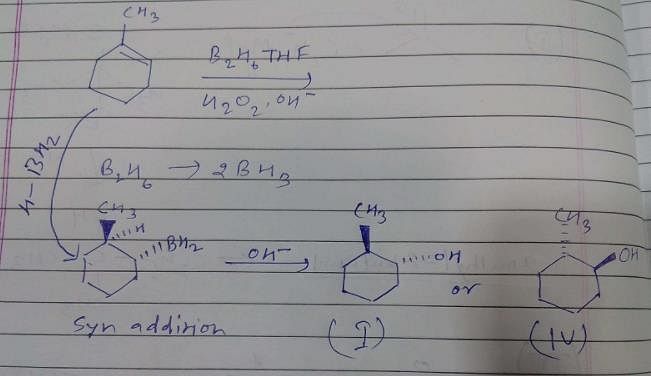 CH3
B2H6 THF
H2O2, OH-
H-BH2
B2H6 → 2BH3
CH3
H
BH2
OH-
CH3
OH
or
CH3
OH
Syn addition
(I)
(IV)